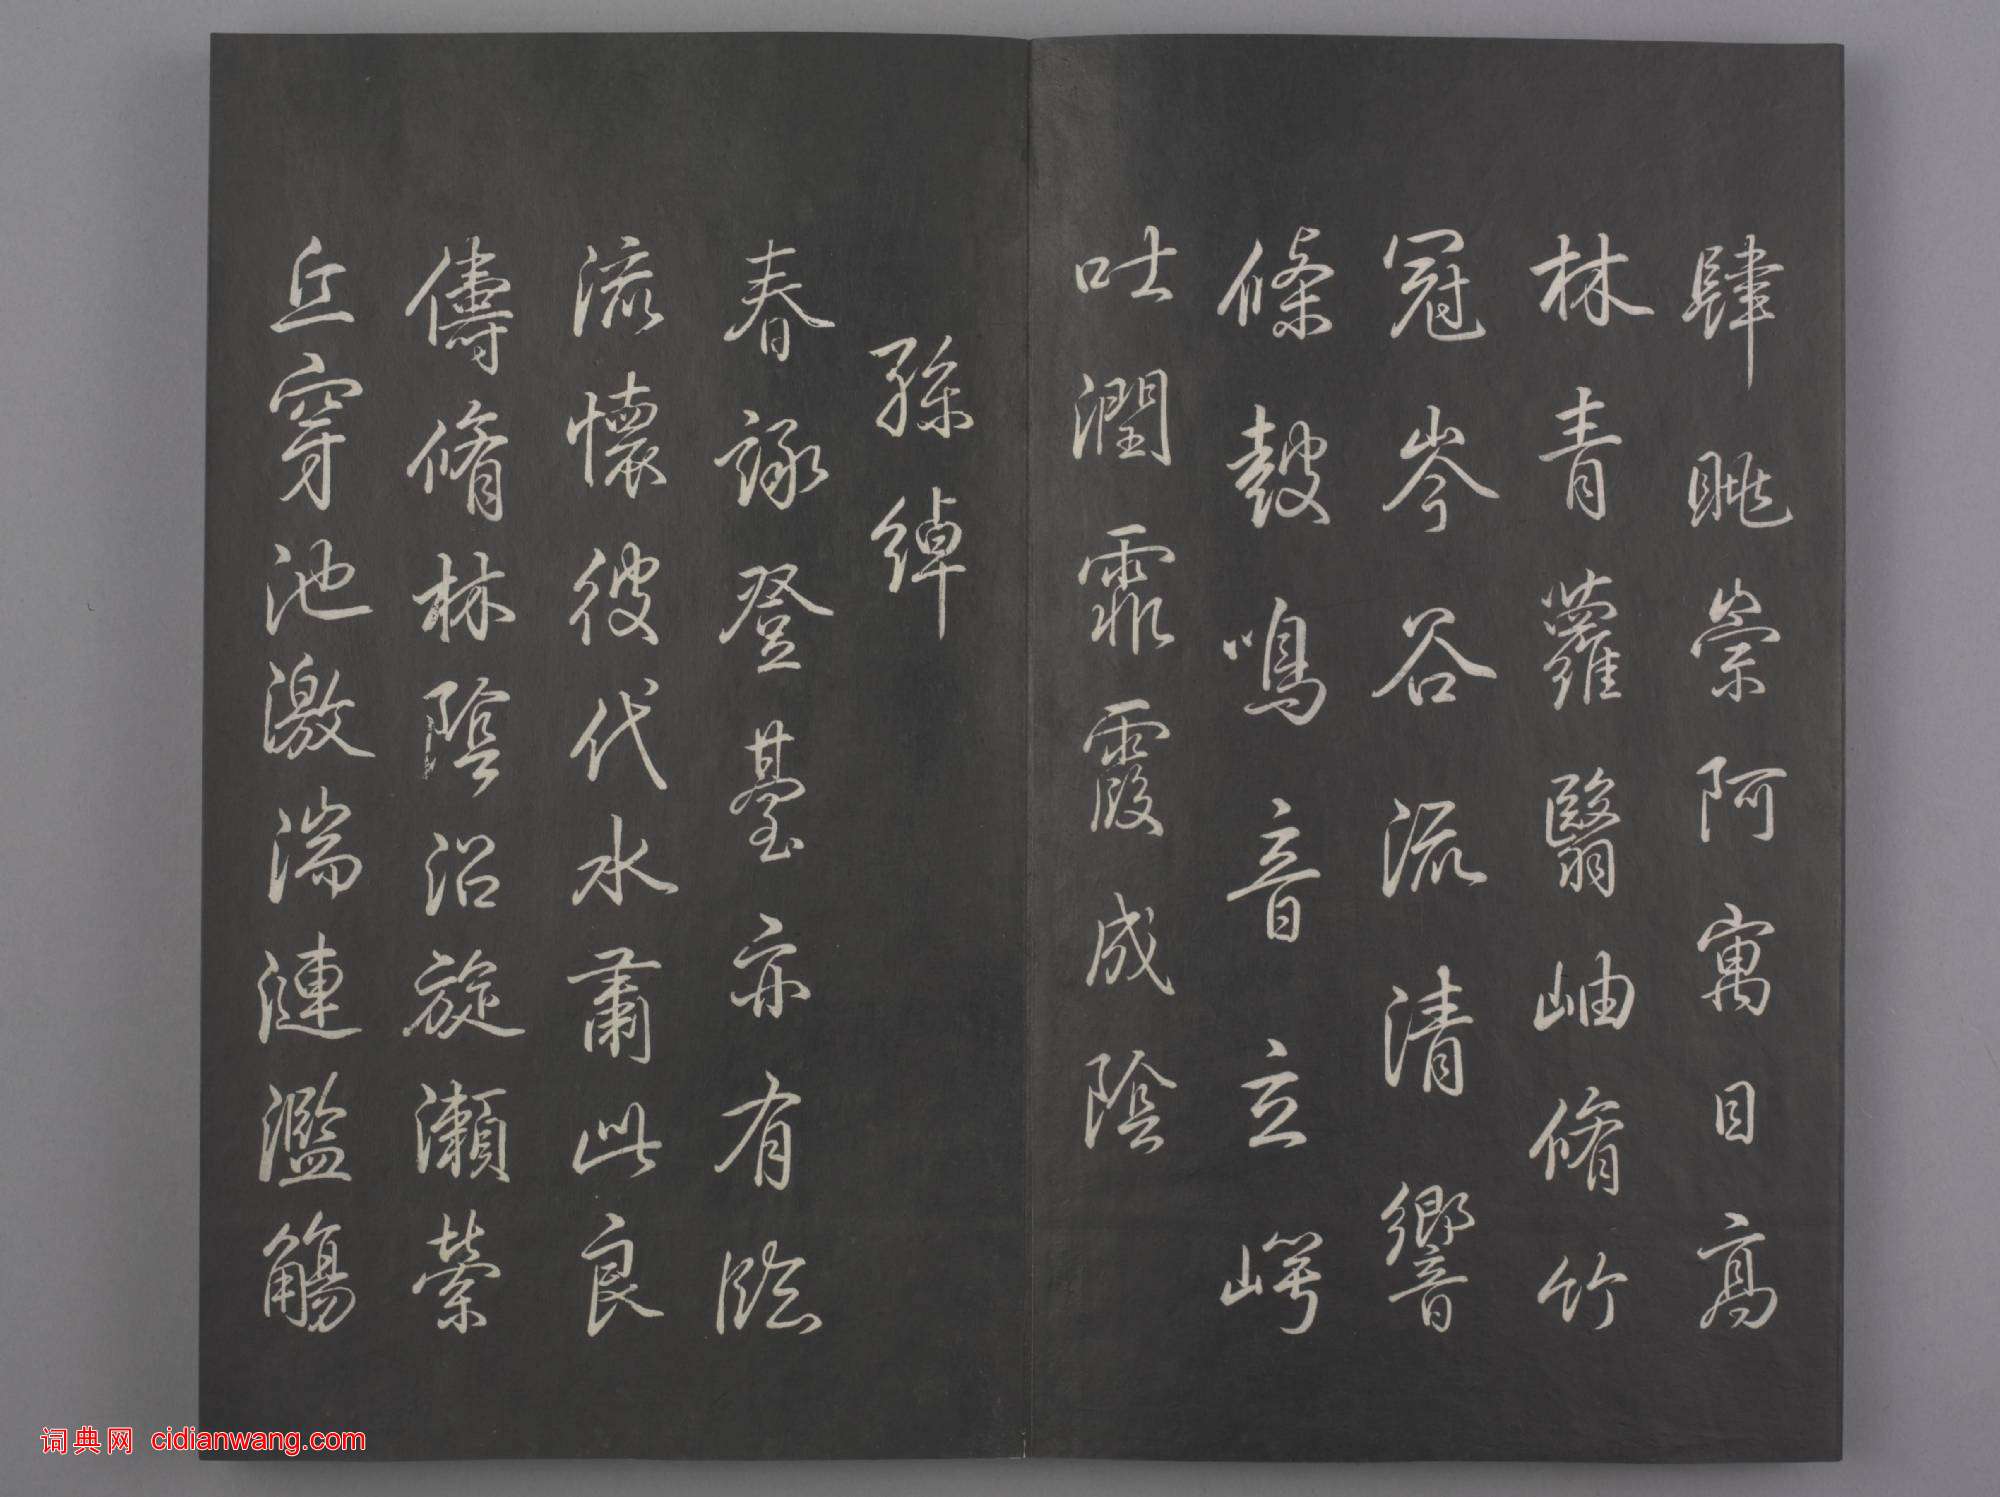 肆眺崇阿寓目高
林青蘿翳岫脩竹
冠岑谷流清響
條鼓鳴音立崿
吐潤霏霞成陰
孫綽
春詠登臺亦有臨
流懷彼伐水肅此良
儔脩林陰沼旋瀨縈
丘穿池激湍連濫觴
词典网 cidianwang.com